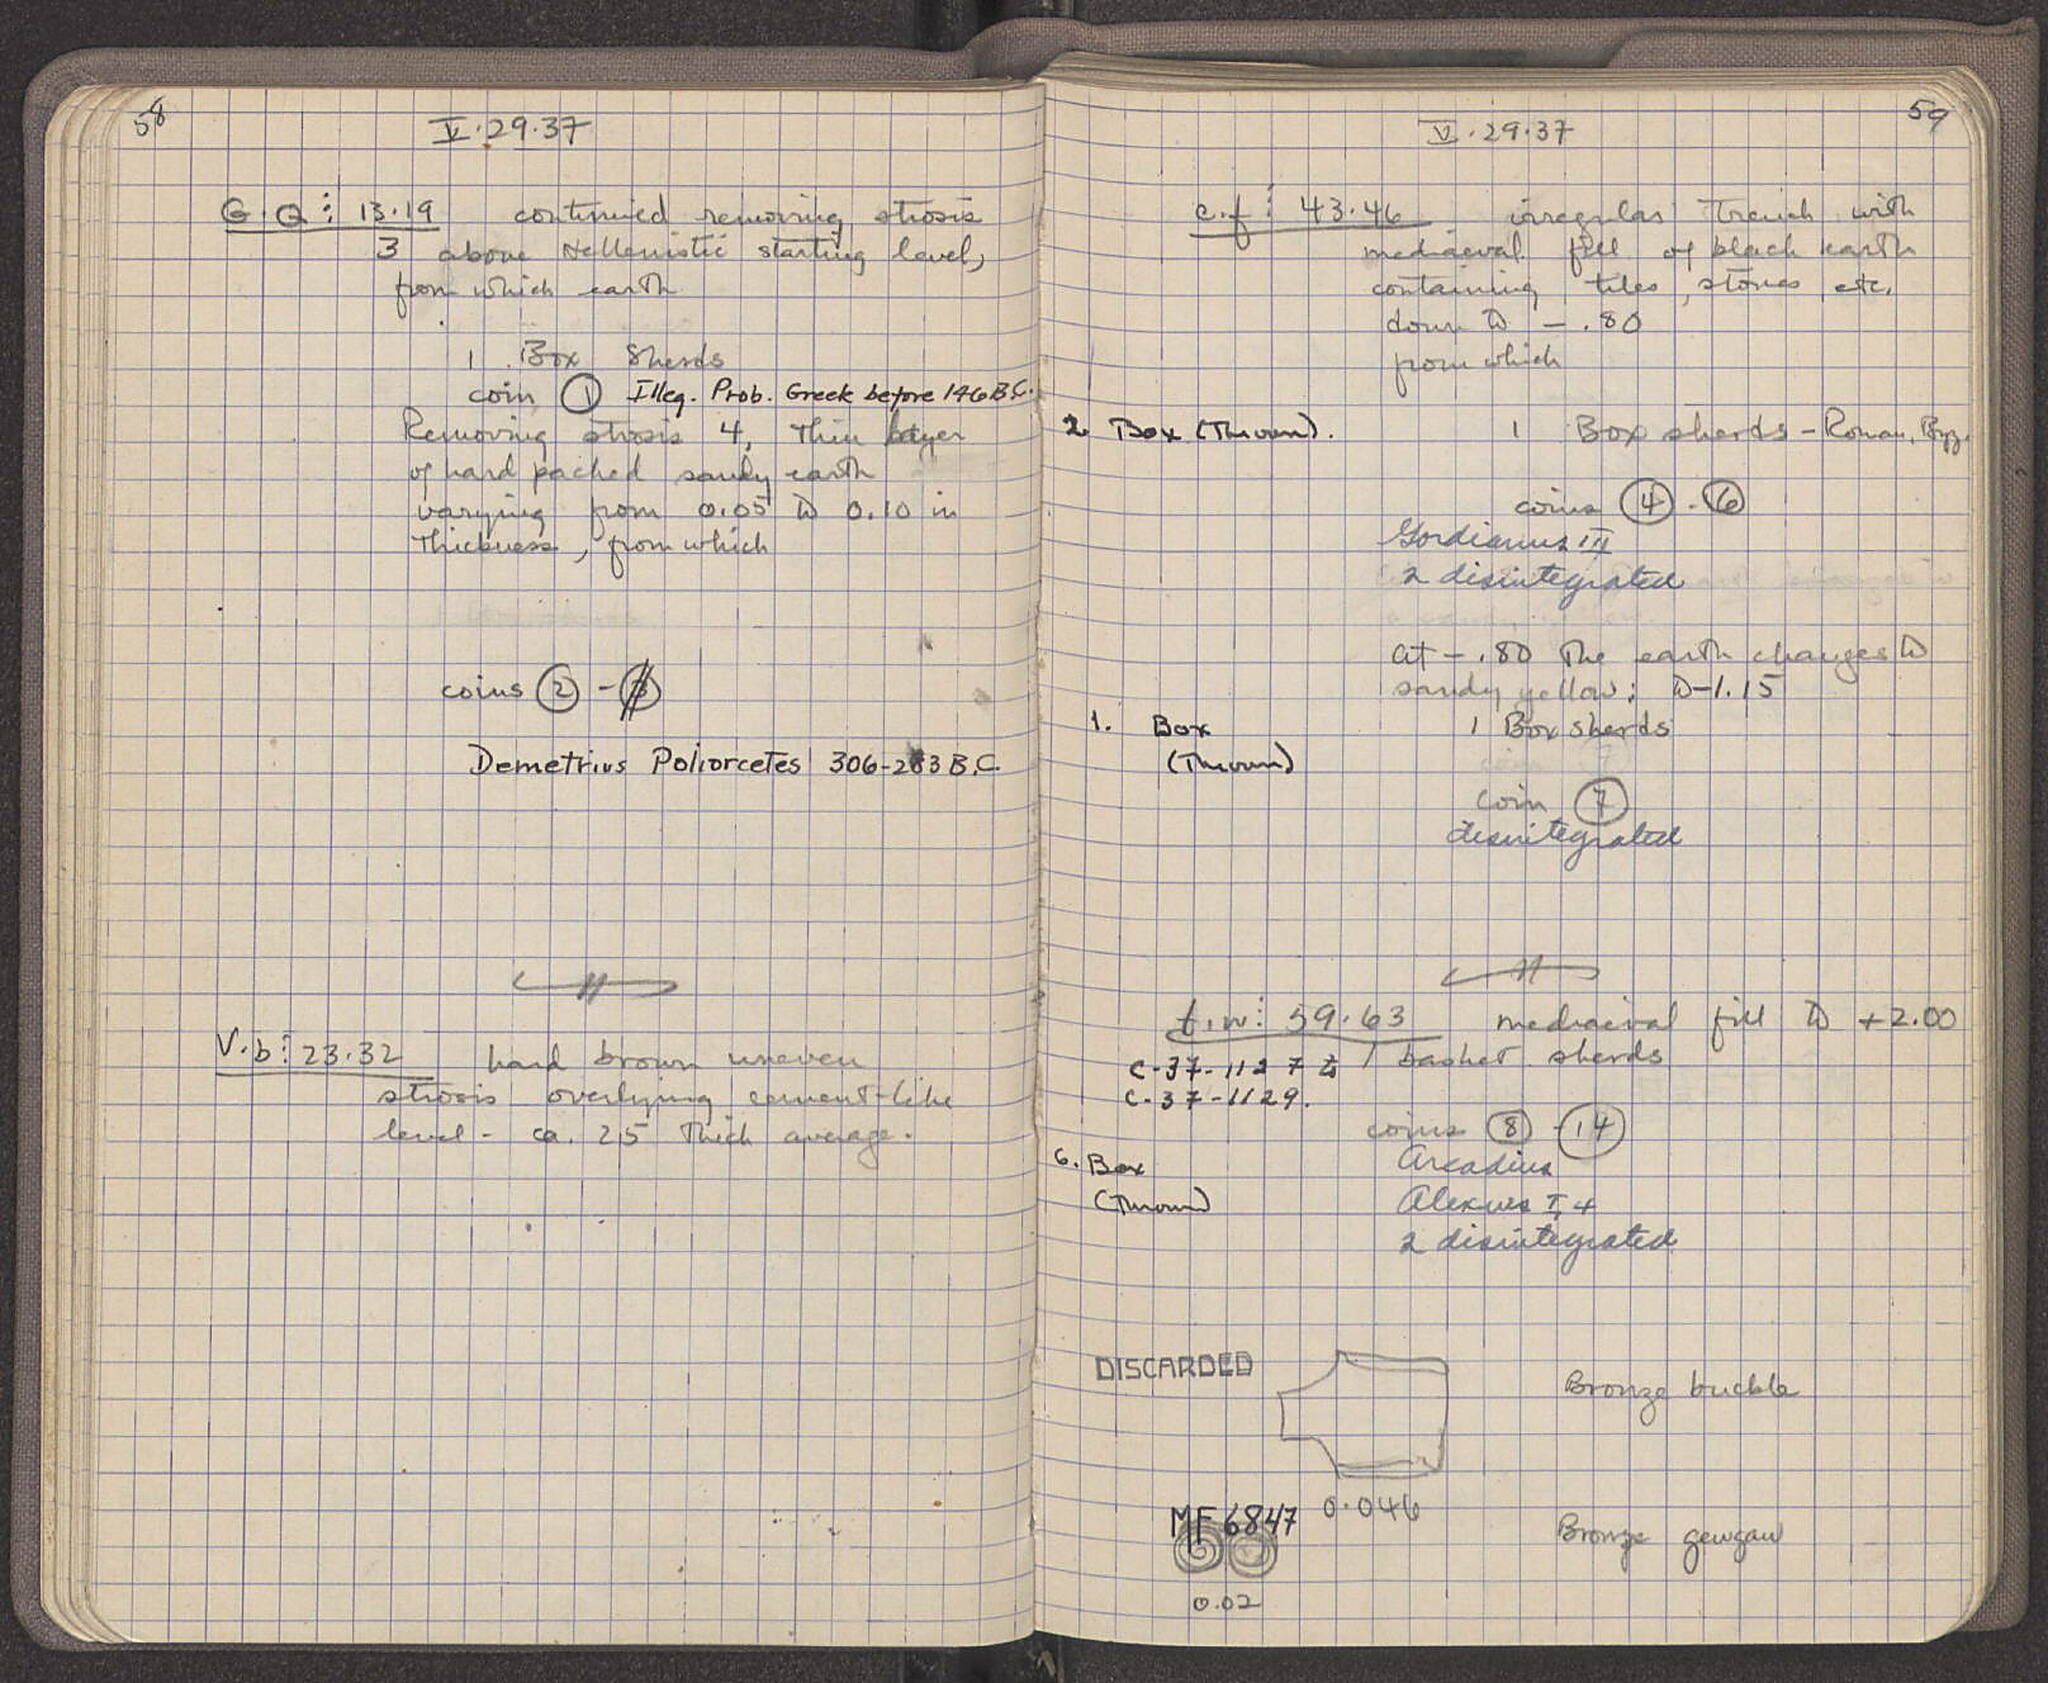 58
V.29.37
G.Q: 13.19 continued removing strosis
3 above Hellenistic starting level,
from which earth
1 Box Sherds
coin 1 Illeg. Prob. Greek before 146 B.C.
Removing strosis 4, thin layer
of hard packed sandy earth
varying from 0.05 to 0.10 in
thickness, from which
coins 2 - 3
Demetrius Poliorcetes 306-283 B.C.
V.b: 23.32 hard brown uneven
strosis overlying cement-like
level - ca. 25 thick average.
59
V.29.37
c.f: 43.46 irregular trench with
mediaeval fill of black earth
containing tiles, stones etc.
down to -.80
from which
2 Box (Thrown). 1 Box sherds - Roman, Byz.
coins 4 - 6
Gordianus III
2 disintegrated
at -.80 the earth changes to
sandy yellow: to -1.15
1. Box 1 Box sherds
(Thrown)
coin 7
disintegrated
t.w: 59.63 mediaeval fill to +2.00
C-37-1127 to 1 basket sherds
C-37-1129.
coins 8 - 14
6. Box Arcadius
(Thrown) Alexius I, 4
2 disintegrated
DISCARDED
Bronze buckle
0.046
MF 6847
Bronze gewgaw
0.02